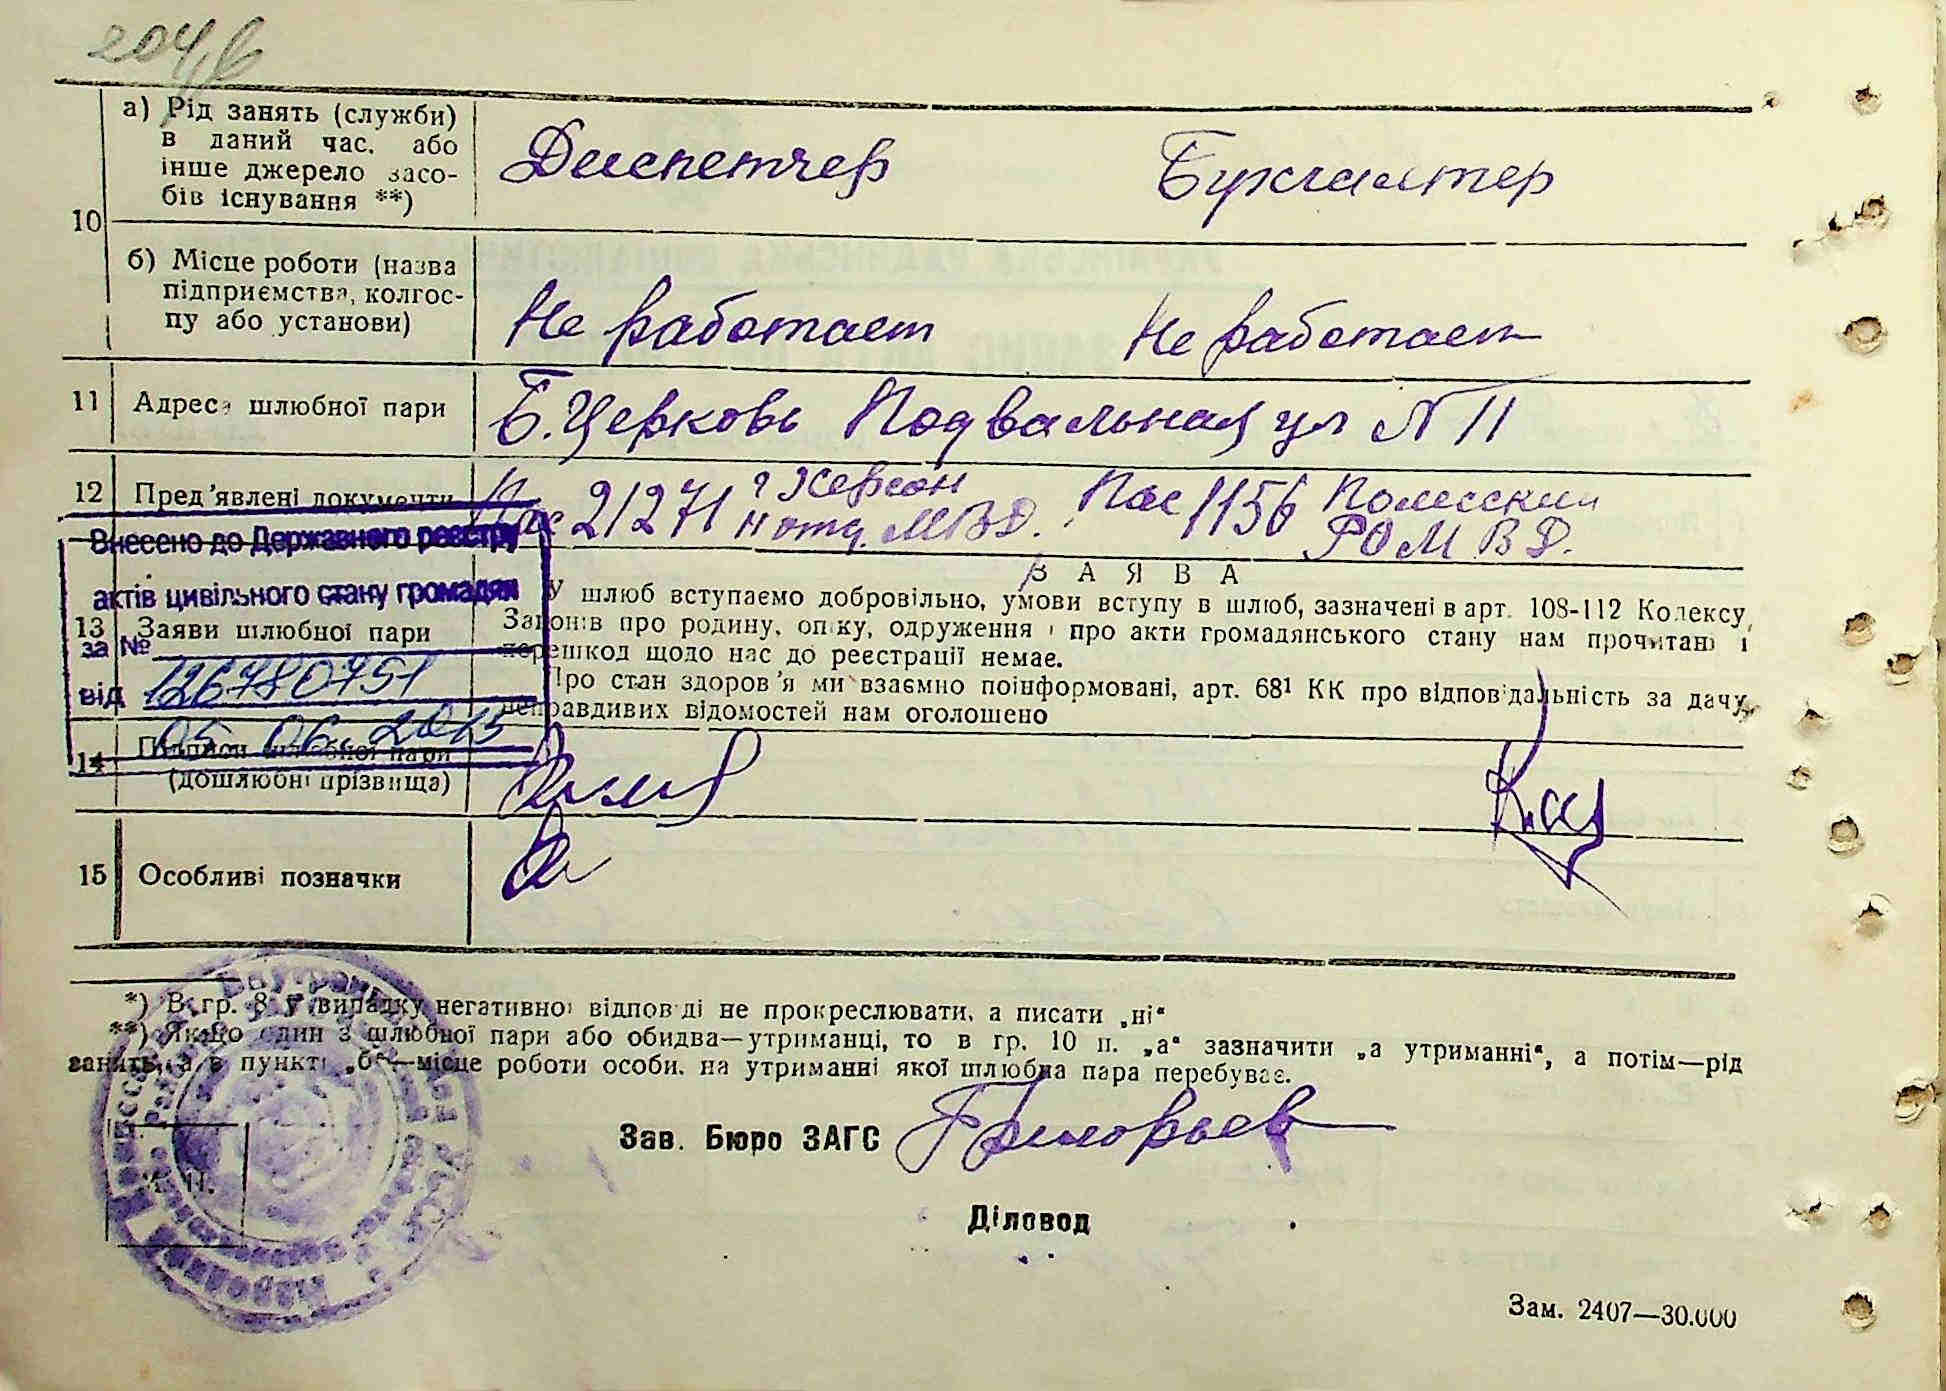 204,в
а) Рід занять (служби)
в даний час, або
інше джерело засо-
бів існування **)
Диспетчер Бухгалтер
10
б) Місце роботи (назва
підприємства, колгос-
пу або установи)
Не работает Не работает
11 Адреса шлюбної пари Б. Церковь Подвальная ул № 11
12 Пред'явлені документи Пас 21271 г Херсон Пас 1156 Полесским
отд. МВД. РОМВД.
Внесено до Державного реєстру
актів цивільного стану громадян
за №
126780751
від
05 06. 2015
ЗАЯВА
13 Заяви шлюбної пари
У шлюб вступаємо добровільно, умови вступу в шлюб, зазначені в арт. 108-112 Кодексу
Законів про родину, опіку, одруження і про акти громадянського стану нам прочитані і
перешкод щодо нас до реєстрації немає.
Про стан здоров'я ми взаємно поінформовані, арт. 68¹ КК про відповідальність за дачу
неправдивих відомостей нам оголошено
14 Підписи шлюбної пари
(дошлюбні прізвища)
15 Особливі позначки
*) В гр. 8 у випадку негативної відповіді не прокреслювати, а писати „ні“
**) Якщо один з шлюбної пари або обидва—утриманці, то в гр. 10 п. „а“ зазначити „а утриманні“, а потім—рід
занять, а в пункті „б“—місце роботи особи, на утриманні якої шлюбна пара перебуває.
Зав. Бюро ЗАГС Григорьев
М. П.
Діловод
Зам. 2407—30.000